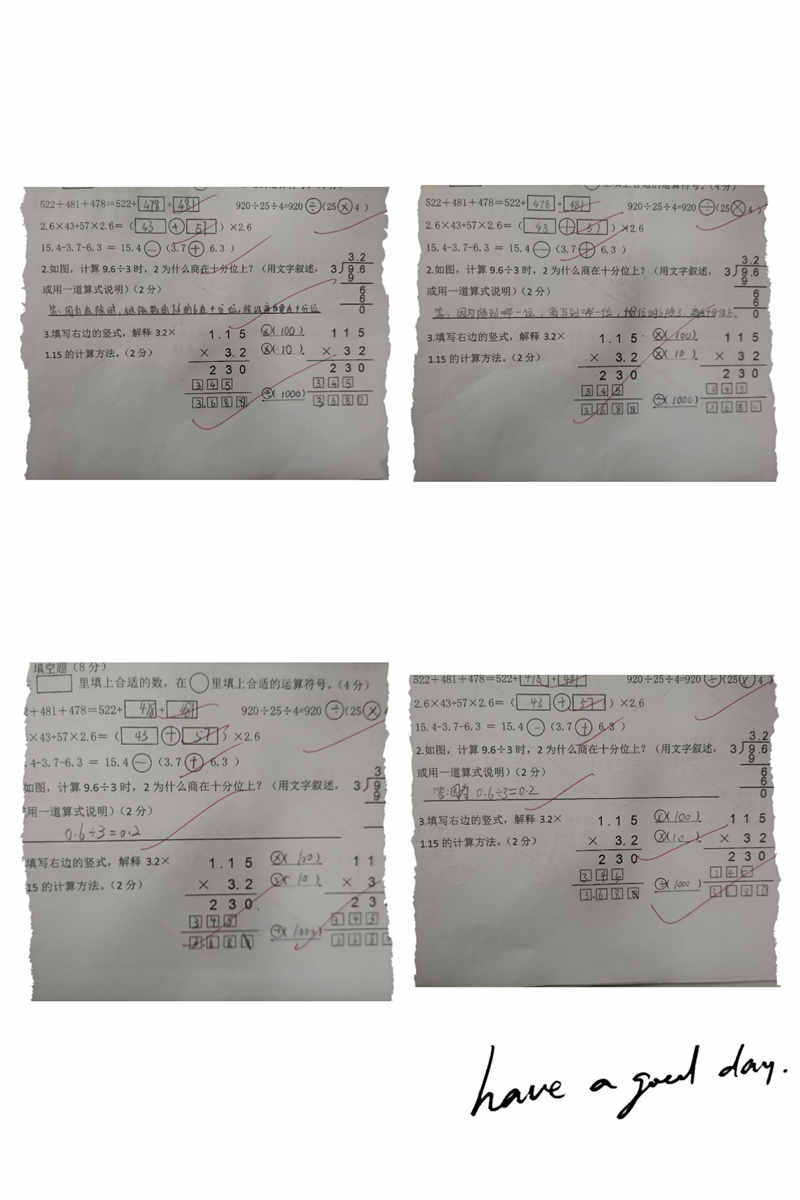 522+481+478=522+ 478 + 481 920÷25÷4=920 ÷ (25 × 4 )
2.6×43+57×2.6=( 43 + 57 )×2.6
15.4-3.7-6.3 = 15.4 - (3.7 + 6.3 )
2.如图，计算 9.6÷3 时，2 为什么商在十分位上？（用文字叙述，
或用一道算式说明）（2 分）
3.2
3 9.6
9
6
6
0
3.填写右边的竖式，解释 3.2×
1.15 的计算方法。（2 分）
1.15 ×(100) 115
× 3.2 ×(10) × 32
230 230
345 345
3.688 ÷(1000) 3680
里填上合适的运算符号。（4 分）
522+481+478=522+ 478 + 481 920÷25÷4=920 ÷ (25 × 4 )
2.6×43+57×2.6=( 43 + 57 )×2.6
15.4-3.7-6.3 = 15.4 - (3.7 + 6.3 )
2.如图，计算 9.6÷3 时，2 为什么商在十分位上？（用文字叙述，
或用一道算式说明）（2 分）
3.2
3 9.6
9
6
6
0
3.填写右边的竖式，解释 3.2×
1.15 的计算方法。（2 分）
1.15 ×(100) 115
× 3.2 ×(10) × 32
230 230
345 345
÷(1000)
填空题（8 分）
里填上合适的数，在 里填上合适的运算符号。（4 分）
+481+478=522+ 478 + 481 920÷25÷4=920 ÷ (25 ×
×43+57×2.6=( 43 + 57 )×2.6
.4-3.7-6.3 = 15.4 - (3.7 + 6.3 )
如图，计算 9.6÷3 时，2 为什么商在十分位上？（用文字叙述，
用一道算式说明）（2 分）
0.6÷3=0.2
3
3 9
9
填写右边的竖式，解释 3.2×
15 的计算方法。（2 分）
1.15 ×(100) 11
× 3.2 ×(10) × 3
230 23
345 345
÷(1000)
522+481+478=522+ 478 + 481 920÷25÷4=920 ÷ (25 × 4 )
2.6×43+57×2.6=( 43 + 57 )×2.6
15.4-3.7-6.3 = 15.4 - (3.7 + 6.3 )
2.如图，计算 9.6÷3 时，2 为什么商在十分位上？（用文字叙述，
或用一道算式说明）（2 分）
答:因为 0.6÷3=0.2
3.2
3 9.6
9
6
6
0
3.填写右边的竖式，解释 3.2×
1.15 的计算方法。（2 分）
1.15 ×(100) 115
× 3.2 ×(10) × 32
230 230
÷(1000)
have a good day.